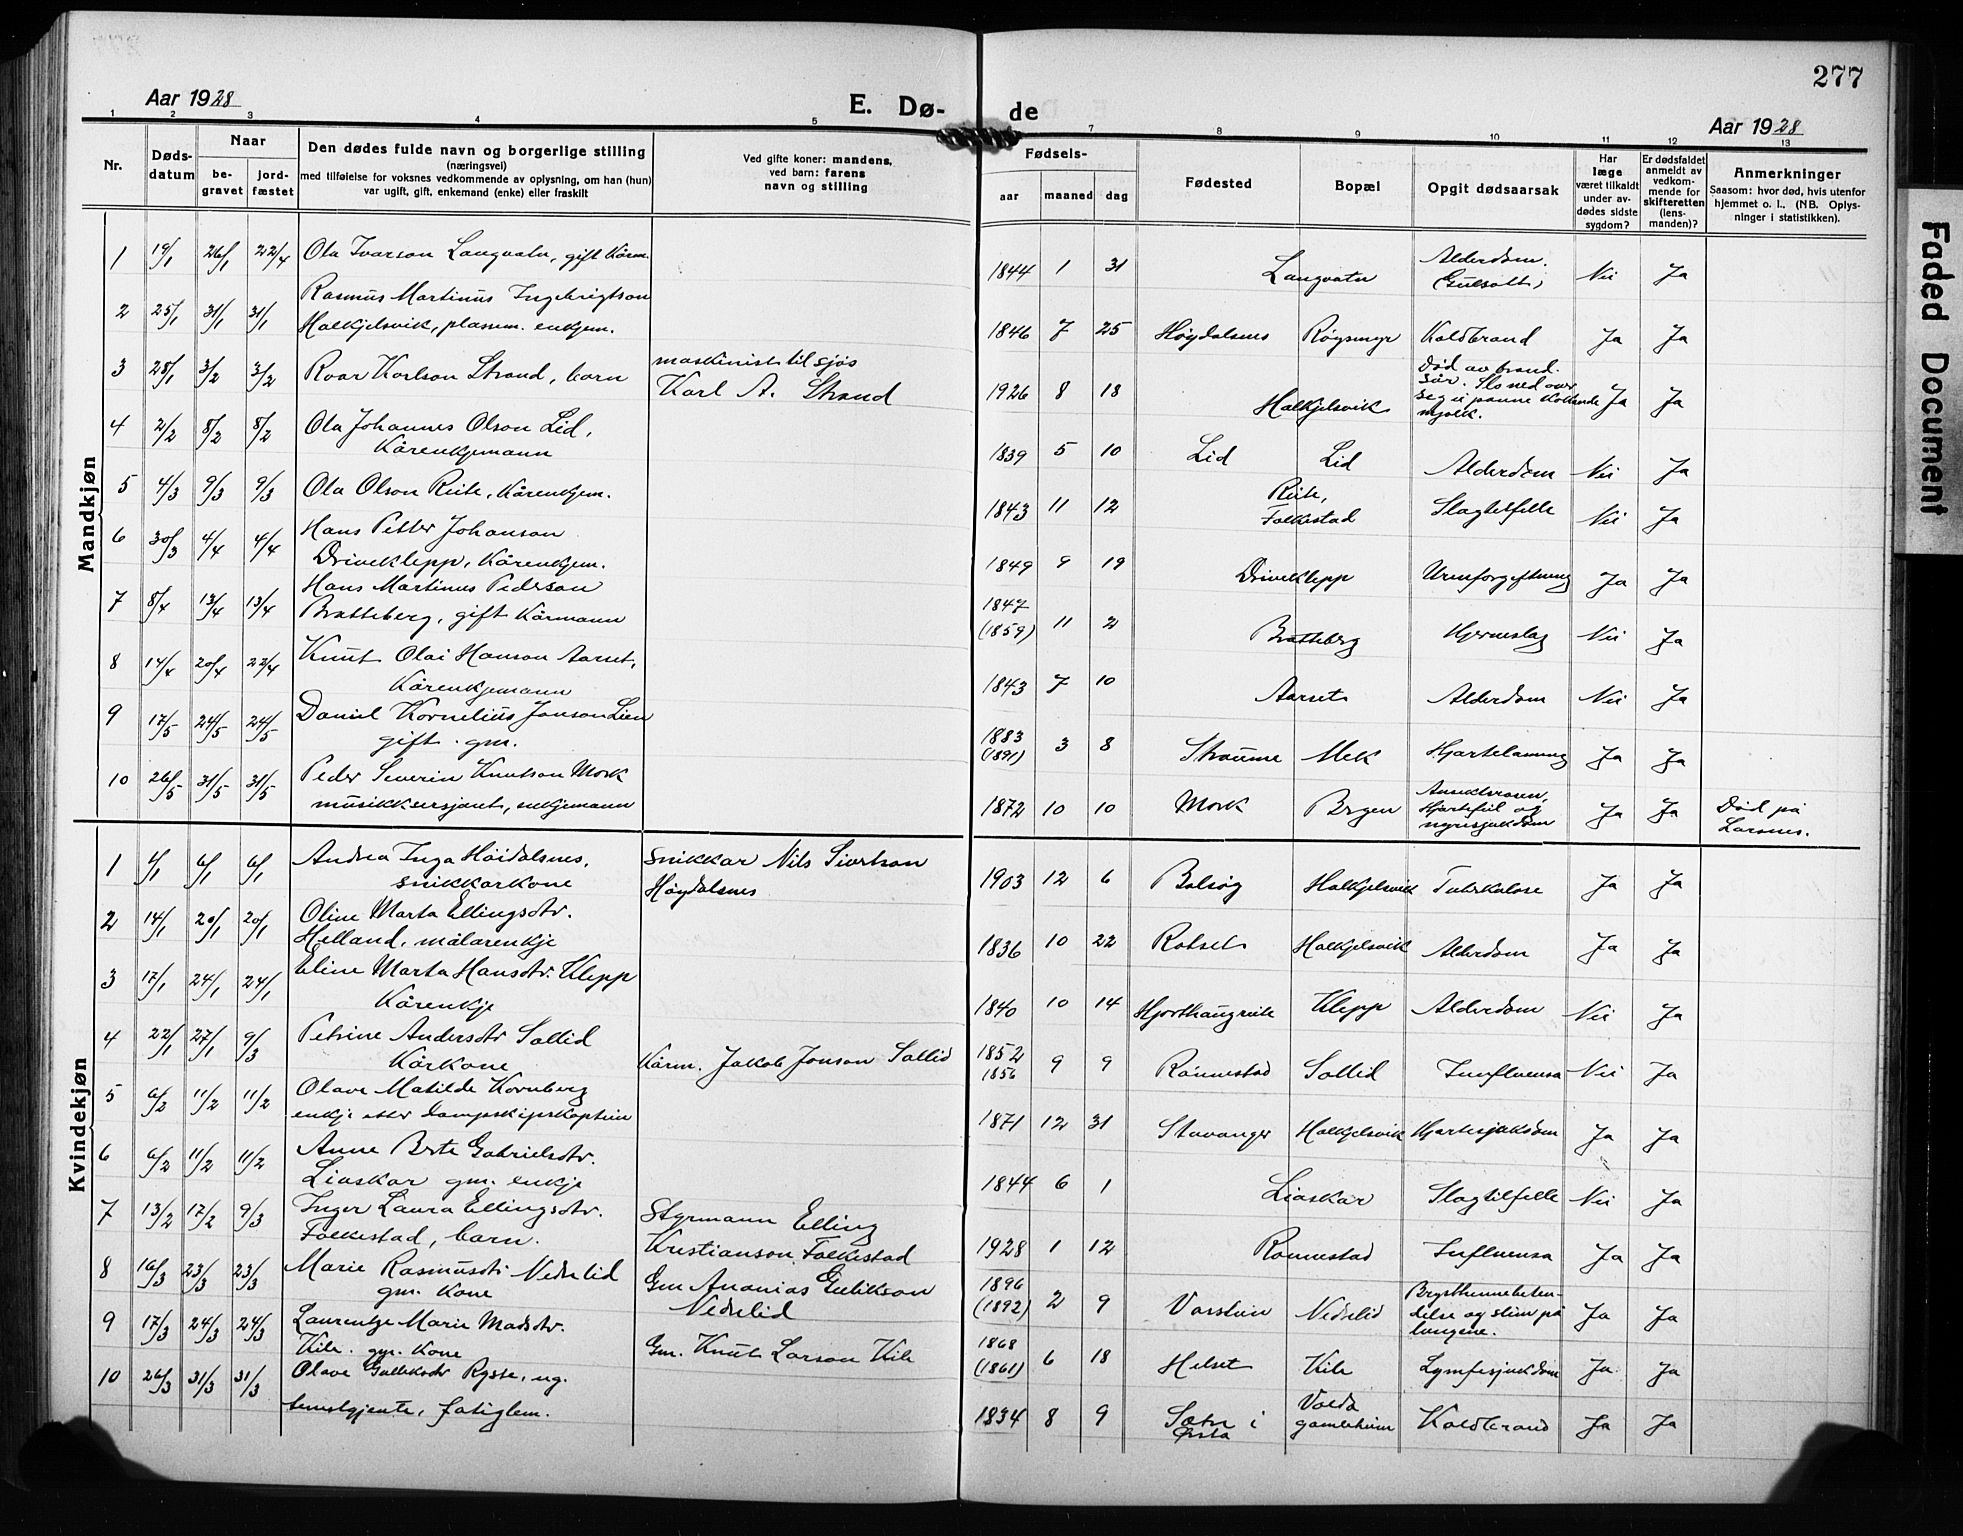 277
Aar 1928
E. Dø-
de
Aar 1928
1 2 3 4 5 7 8 9 10 11 12 13
Nr.
Døds-
datum
Naar
be-
gravet
jord-
fæstet
Den dødes fulde navn og borgerlige stilling
(næringsvei)
med tilføielse for voksnes vedkommende av oplysning, om han (hun)
var ugift, gift, enkemand (enke) eller fraskilt
Ved gifte koner: mandens,
ved barn: farens
navn og stilling
Fødsels-
aar
maaned
dag
Fødested
Bopæl
Opgit dødsaarsak
Har
læge
været tilkaldt
under av-
dødes sidste
sygdom?
Er dødsfaldet
anmeldt av
vedkom-
mende for
skifteretten
(lens-
manden)?
Anmerkninger
Saasom: hvor død, hvis utenfor
hjemmet o. l., (NB. Oplys-
ninger i statistikken).
Mandkjøn
1 19/1 26/1 22/4 Ola Ivarson Langvatn, gift Kårm. 1844 1 31 Langvatn Alderdom. Nei Ja
(Gulsott)
2 25/1 31/1 31/1 Rasmus Martinus Ingebrigtson
Halkjelsvik, plassm. enkjem. 1846 7 25 Høydalsnes Røysmyr Koldbrand Ja Ja
3 28/1 3/2 3/2 Roar Karlson Strand, barn
maskinist til sjøs
Karl A. Strand
1926 8 18 Halkjelsvik Død av brand-
sår. Slo ned over
seg ei panne kokande
mjølk. Ja Ja
4 2/2 8/2 8/2 Ola Johannes Olson Lid,
Kårenkjemann 1839 5 10 Lid Lid Alderdom Nei Ja
5 4/3 9/3 9/3 Ola Olson Reite, Kårenkjem. 1843 11 12 Reite,
Folkestad Slagtilfelle Nei Ja
6 30/3 4/4 4/4 Hans Petter Johanson
Driveklepp, Kårenkjem. 1849 9 19 Driveklepp Urinforgiftning Ja Ja
7 8/4 13/4 13/4 Hans Martinus Pederson
Bratteberg, gift Kårmann 1847
(1859) 11 2 Bratteberg Hjerneslag Nei Ja
8 14/4 20/4 22/4 Knut Olai Hanson Aarset,
Kårenkjemann 1843 7 10 Aarset Alderdom Nei Ja
9 17/5 24/5 24/5 Daniel Kornelius Jonson Lien
gift. gm. 1883
(1891) 3 8 Straume Mek Hjartelamning Ja Ja
10 26/5 31/5 31/5 Peder Severin Knutson Mork
musikksersjant, enkjemann 1872 10 10 Mork Bergen
Hjartefeil og
nyresjukdom Ja Ja Død på
Larsnes.
Kvindekjøn
1 1/1 6/1 6/1 Andrea Inga Høidalsnes,
snikkarkone
snikkar Nils Sivertson
Høydalsnes
1903 12 6 Bolsøy Halkjelsvik Tuberkulose Ja Ja
2 14/1 20/1 20/1 Oline Marta Ellingsdtr.
Helland, målarenkje 1836 10 22 Rotset Halkjelsvik Alderdom Ja Ja
3 17/1 24/1 24/1 Eline Marta Hansdtr. Klepp
Kårenkje 1840 10 14 Hjorthaugreite Klepp Alderdom Nei Ja
4 22/1 27/1 9/3 Petrine Andersdtr Sollid
Kårkone Kårm. Jakob Jonson Sollid 1852
1856 9 9 Rønnestad Sollid Innfluensa Nei Ja
5 6/2 11/2 11/2 Olave Matilde Kornberg
enkje etter dampskipskaptein 1871 12 31 Stavanger Halkjelsvik Hjartesjukdom Ja Ja
6 6/2 11/2 11/2 Anne Berte Gabrielsdtr.
Liaskar gm. enkje 1844 6 1 Liaskar Slagtilfelle Nei Ja
7 13/2 17/2 9/3 Inger Laura Ellingsdtr.
Folkestad, barn.
Styrmann Elling
Kristianson Folkestad
1928 1 12 Rønnestad Influensa Ja Ja
8 16/3 23/3 23/3 Marie Rasmusdtr Nedrelid
gm. kone
Gm Ananias Gulikson
Nedrelid
1896
(1892) 2 9 Vasstein Nedrelid Brysthinnebeten-
delse og slim på
lungene. Ja Ja
9 17/3 24/3 24/3 Laurentze Marie Madsdtr.
Kile. gm. kone Gm. Knut Larson Kile 1868
(1861) 6 18 Helset Kile Lymfesjukdom Ja Ja
10 26/3 31/3 31/3 Olave Gulleksdtr Rysse, ug.
tenestgjente, fatiglem. 1834 8 9 Sætre i
Ørsta Volda
gamleheim Koldbrand Ja Ja
Faded Document